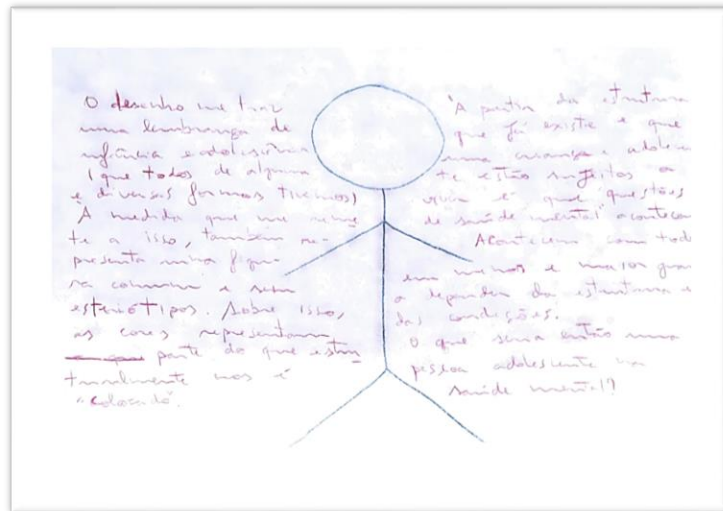 O desenho me traz
uma lembrança de
infância e adolescência
(que todos de alguma
e diversas formas tivemos)
À medida que me reme
te a isso, também re-
presenta uma figu-
ra comum e sem
esteriótipos. Sobre isso,
as cores representam
parte do que estru
turalmente nos é
"colocado".
"A partir da estrutura
que já existe e que
uma criança e adolescen
te estão sujeitos a
viver é que "questões
de saúde mental" acontecem
Acontecem com tod
em menor e maior grau
a depender da estrutura e
das condições.
O que seria então uma
pessoa adolescente
saúde mental?